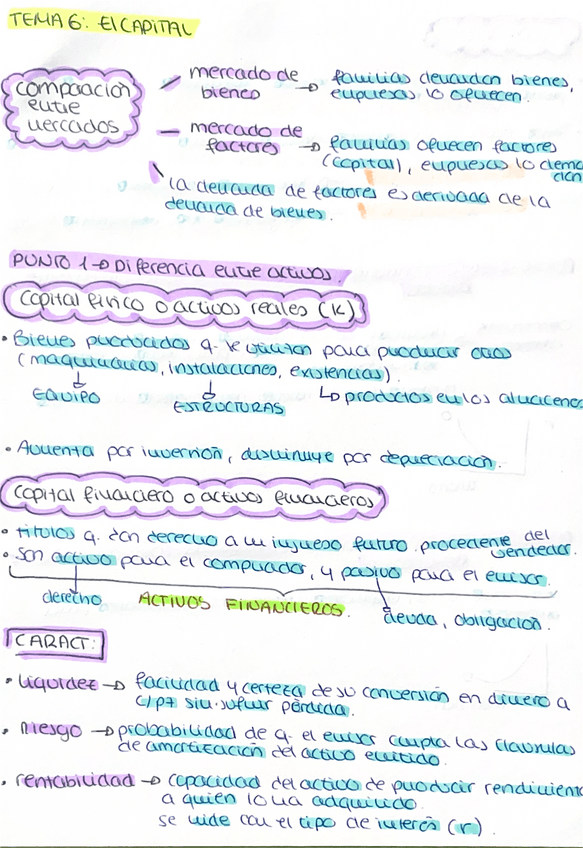 TEMA 6: El CAPITAL
comparación
entre
mercados
mercado de
bienes → familias demandan bienes,
empresas lo ofrecen.
mercado de
factores → familias ofrecen factores
(capital), empresas lo deman
dan
la demanda de factores es derivada de la
demanda de bienes.
PUNTO 1 → Diferencia entre activos.
Capital físico o activos reales (K)
• Bienes producidos q. se utilizan para producir otros
(maquinarias, instalaciones, existencias).
EQUIPO
ESTRUCTURAS
↳ productos en los almacenes
• Aumenta por inversión, disminuye por depreciación.
Capital financiero o activos financieros
• títulos q. dan derecho a un ingreso futuro procedente del
vendedor.
• Son activo para el comprador, y pasivo para el emisor.
derecho ACTIVOS FINANCIEROS. deuda, obligación.
CARACT:
• Liquidez → facilidad y certeza de su conversión en dinero a
c/p sin sufrir pérdida.
• riesgo → probabilidad de q. el emisor cumpla las cláusulas
de amortización del activo emitido.
• rentabilidad → capacidad del activo de producir rendimien
a quien lo ha adquirido.
se mide con el tipo de interés (r).